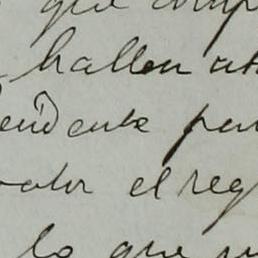 que comp
hallen at
endente par
valor el reg
lo que